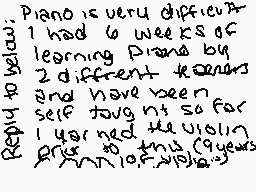 Reply to below:
Piano is very difficult
I had 6 weeks of
learning piano by
2 diffrent teachers
and have been
self taught so far
I learned the violin
prior to this (9 years
of violin)